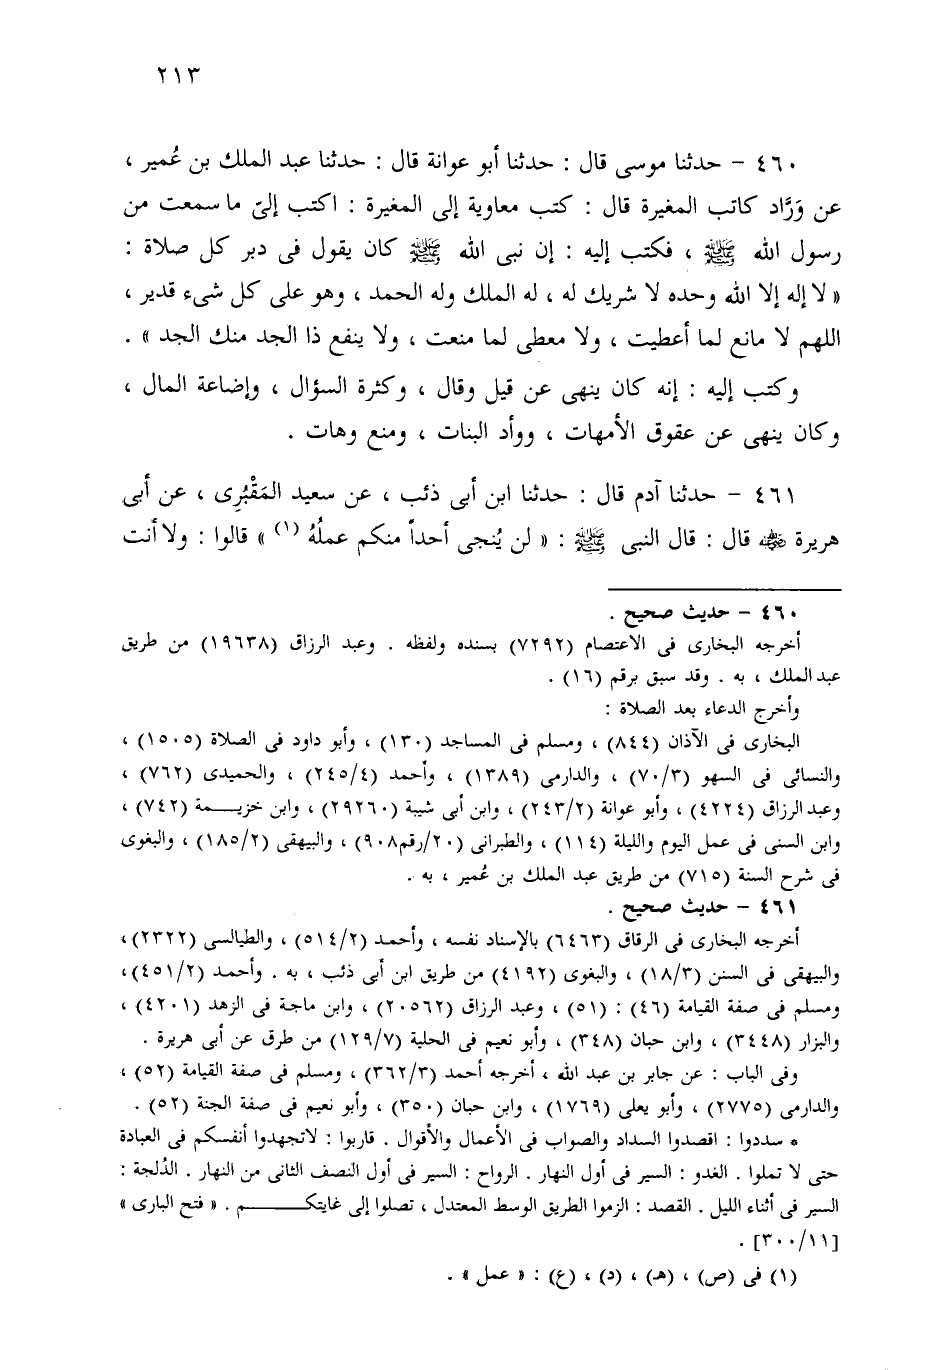 ٢١٣
٤٦٠ – حدثنا موسى قال : حدثنا أبو عوانة قال : حدثنا عبد الملك بن عُمير ،
عن وَرَّاد كاتب المغيرة قال : كتب معاوية إلى المغيرة : اكتب إلىّ ما سمعت من
رسول الله ﷺ ، فكتب إليه : إن نبى الله ﷺ كان يقول فى دبر كل صلاة :
« لا إله إلا الله وحده لا شريك له ، له الملك وله الحمد ، وهو على كل شىء قدير ،
اللهم لا مانع لما أعطيت ، ولا معطى لما منعت ، ولا ينفع ذا الجد منك الجد » .
وكتب إليه : إنه كان ينهى عن قيل وقال ، وكثرة السؤال ، وإضاعة المال ،
وكان ينهى عن عقوق الأمهات ، ووأد البنات ، ومنع وهات .
٤٦١ – حدثنا آدم قال : حدثنا ابن أبى ذئب ، عن سعيد المَقْبُرِى ، عن أبى
هريرة رضي الله عنه قال : قال النبى ﷺ : « لن يُنجى أحداً منكم عملُهُ (١) » قالوا : ولا أنت
٤٦٠ – حديث صحيح .
أخرجه البخارى فى الاعتصام (٧٢٩٢) بسنده ولفظه . وعبد الرزاق (١٩٦٣٨) من طريق
عبد الملك ، به . وقد سبق برقم (١٦) .
وأخرج الدعاء بعد الصلاة :
البخارى فى الآذان (٨٤٤) ، ومسلم فى المساجد (١٣٠) ، وأبو داود فى الصلاة (١٥٠٥) ،
والنسائى فى السهو (٧٠/٣) ، والدارمى (١٣٨٩) ، وأحمد (٢٤٥/٤) ، والحميدى (٧٦٢) ،
وعبد الرزاق (٤٢٢٤) ، وأبو عوانة (٢٤٣/٢) ، وابن أبى شيبة (٢٩٢٦٠) ، وابن خزيـــمة (٧٤٢) ،
وابن السنى فى عمل اليوم والليلة (١١٤) ، والطبرانى (٢٠/رقم٩٠٨) ، والبيهقى (١٨٥/٢) ، والبغوى
فى شرح السنة (٧١٥) من طريق عبد الملك بن عُمير ، به .
٤٦١ – حديث صحيح .
أخرجه البخارى فى الرقاق (٦٤٦٣) بالإسناد نفسه ، وأحمد (٥١٤/٢) ، والطيالسى (٢٣٢٢) ،
والبيهقى فى السنن (١٨/٣) ، والبغوى (٤١٩٢) من طريق ابن أبى ذئب ، به . وأحمد (٤٥١/٢) ،
ومسلم فى صفة القيامة (٤٦) : (٥١) ، وعبد الرزاق (٢٠٥٦٢) ، وابن ماجة فى الزهد (٤٢٠١) ،
والبزار (٣٤٤٨) ، وابن حبان (٣٤٨) ، وأبو نعيم فى الحلية (١٢٩/٧) من طرق عن أبى هريرة .
وفى الباب : عن جابر بن عبد الله ، أخرجه أحمد (٣٦٢/٣) ، ومسلم فى صفة القيامة (٥٢) ،
والدارمى (٢٧٧٥) ، وأبو يعلى (١٧٦٩) ، وابن حبان (٣٥٠) ، وأبو نعيم فى صفة الجنة (٥٢) .
* سددوا : اقصدوا السداد والصواب فى الأعمال والأقوال . قاربوا : لاتجهدوا أنفسكم فى العبادة
حتى لا تملوا . الغدو : السير فى أول النهار . الرواح : السير فى أول النصف الثانى من النهار . الدُلجة :
السير فى أثناء الليل . القصد : الزموا الطريق الوسط المعتدل ، تصلوا إلى غايتكـــــــم . « فتح البارى »
[٣٠٠/١١] .
(١) فى (ص) ، (هـ) ، (د) ، (ع) : « عمل » .